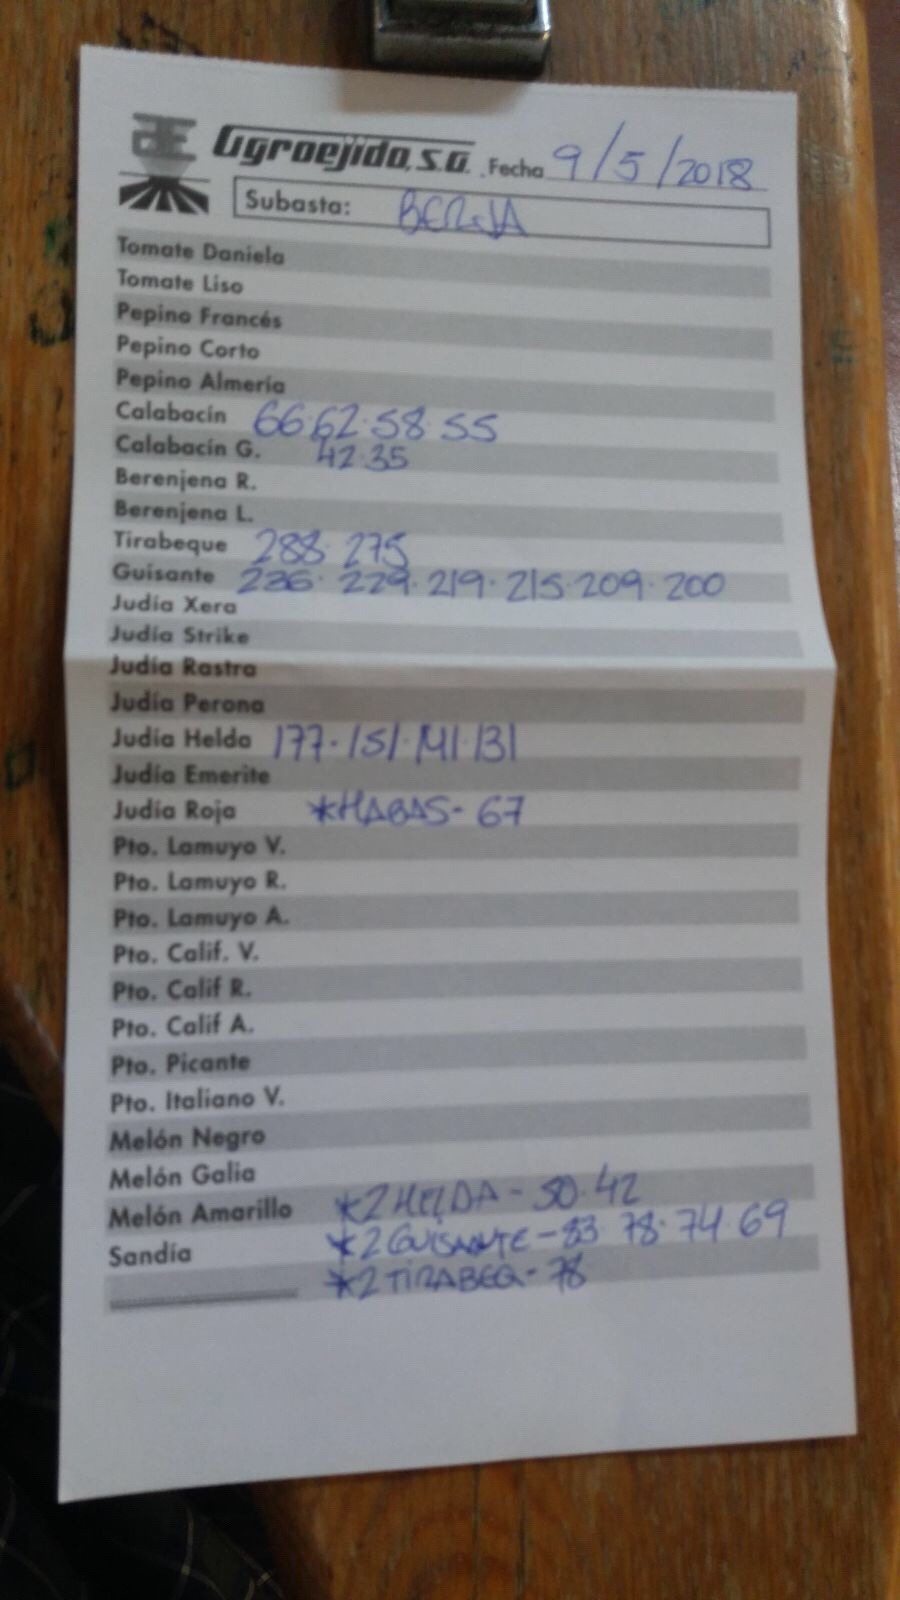 Agroejido, S.A. Fecha 9/5/2018
Subasta: BERJA
Tomate Daniela
Tomate Liso
Pepino Francés
Pepino Corto
Pepino Almería
Calabacín 66·62·58·55
Calabacín G. 42·35
Berenjena R.
Berenjena L.
Tirabeque 288·275
Guisante 236·229·219·215·209·200
Judía Xera
Judía Strike
Judía Rastra
Judía Perona
Judía Helda 177·151·141·131
Judía Emerite
Judía Roja *HABAS- 67
Pto. Lamuyo V.
Pto. Lamuyo R.
Pto. Lamuyo A.
Pto. Calif. V.
Pto. Calif R.
Pto. Calif A.
Pto. Picante
Pto. Italiano V.
Melón Negro
Melón Galia
Melón Amarillo *2 HELDA - 50·42
Sandía *2 GUISANTE - 83·78·74·69
*2 TIRABEQ - 78